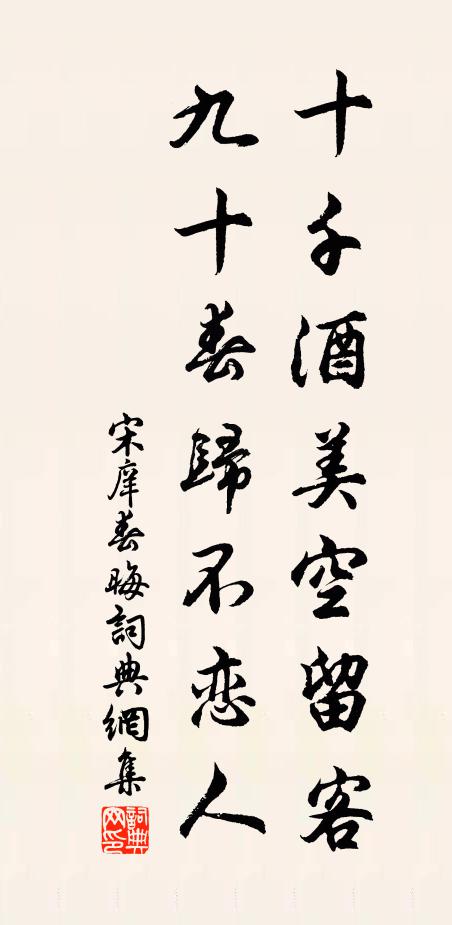 十千酒美空留客
九十春歸不恋人
宋庠春晦詞典網集
詞典网印